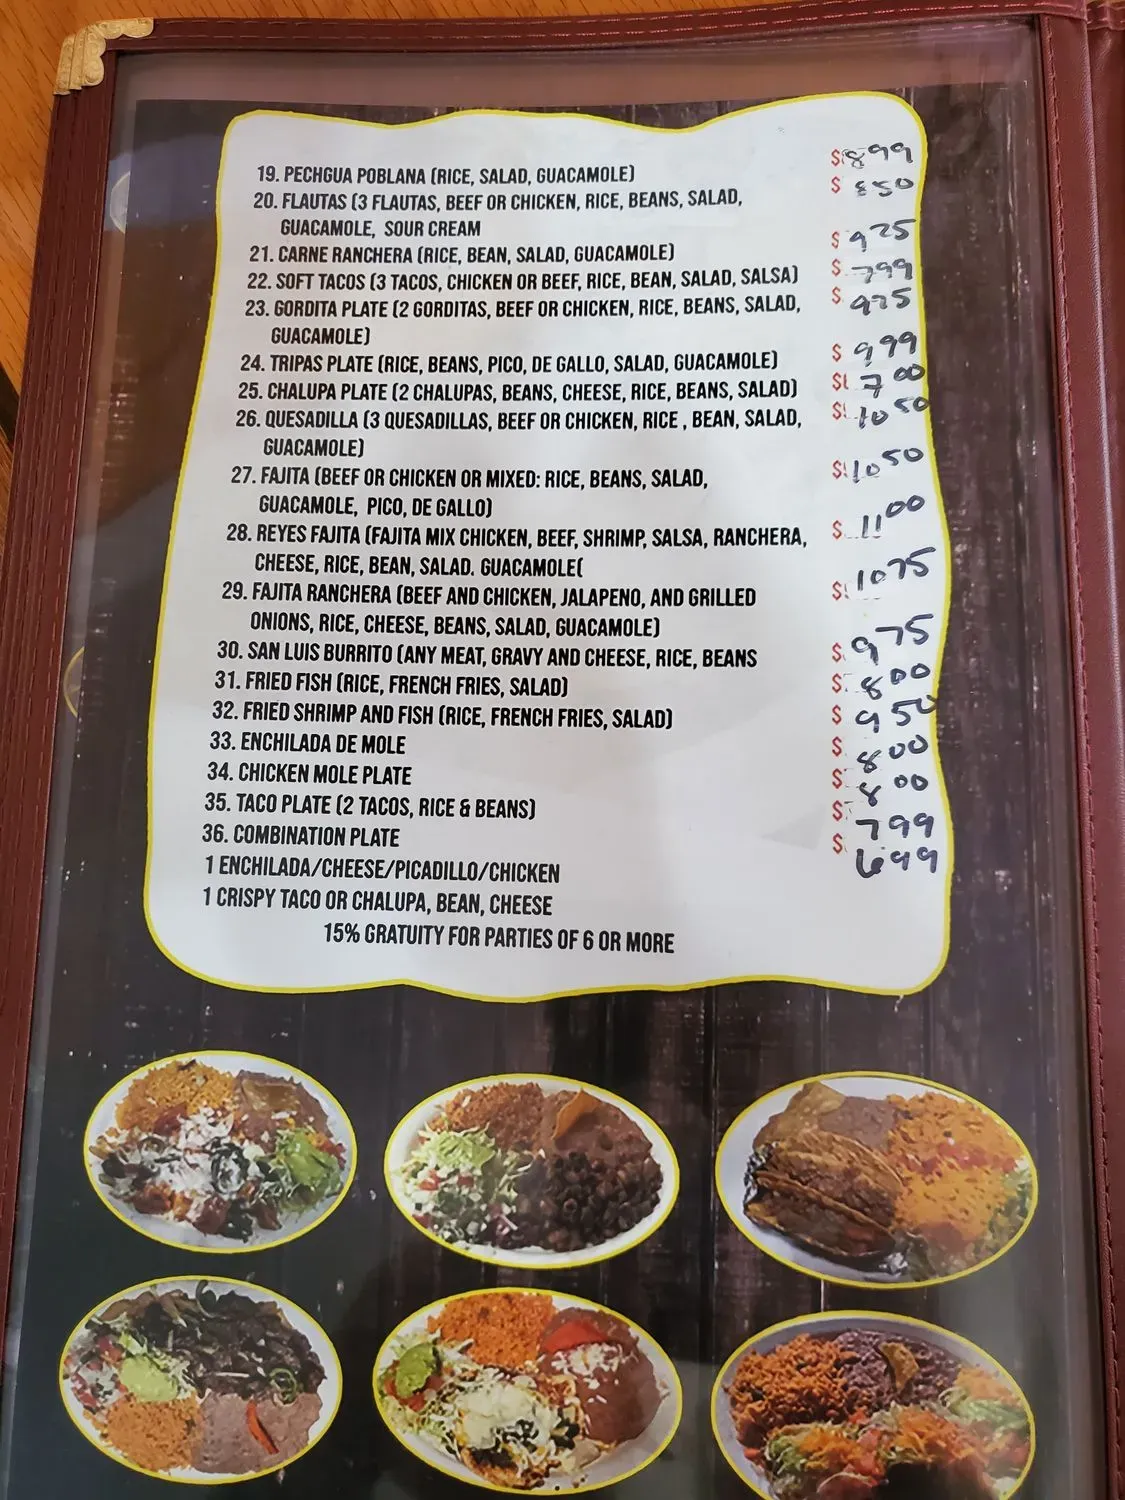 19. PECHGUA POBLANA (RICE, SALAD, GUACAMOLE) $ 899
20. FLAUTAS (3 FLAUTAS, BEEF OR CHICKEN, RICE, BEANS, SALAD, $ 850
GUACAMOLE, SOUR CREAM
21. CARNE RANCHERA (RICE, BEAN, SALAD, GUACAMOLE) $ 925
22. SOFT TACOS (3 TACOS, CHICKEN OR BEEF, RICE, BEAN, SALAD, SALSA) $ 799
23. GORDITA PLATE (2 GORDITAS, BEEF OR CHICKEN, RICE, BEANS, SALAD, $ 975
GUACAMOLE)
24. TRIPAS PLATE (RICE, BEANS, PICO, DE GALLO, SALAD, GUACAMOLE) $ 999
25. CHALUPA PLATE (2 CHALUPAS, BEANS, CHEESE, RICE, BEANS, SALAD) $ 700
26. QUESADILLA (3 QUESADILLAS, BEEF OR CHICKEN, RICE , BEAN, SALAD, $ 1050
GUACAMOLE)
27. FAJITA (BEEF OR CHICKEN OR MIXED: RICE, BEANS, SALAD, $ 1050
GUACAMOLE, PICO, DE GALLO)
28. REYES FAJITA (FAJITA MIX CHICKEN, BEEF, SHRIMP, SALSA, RANCHERA, $ 1100
CHEESE, RICE, BEAN, SALAD. GUACAMOLE(
29. FAJITA RANCHERA (BEEF AND CHICKEN, JALAPENO, AND GRILLED $ 1075
ONIONS, RICE, CHEESE, BEANS, SALAD, GUACAMOLE)
30. SAN LUIS BURRITO (ANY MEAT, GRAVY AND CHEESE, RICE, BEANS $ 975
31. FRIED FISH (RICE, FRENCH FRIES, SALAD) $ 800
32. FRIED SHRIMP AND FISH (RICE, FRENCH FRIES, SALAD) $ 950
33. ENCHILADA DE MOLE $ 800
34. CHICKEN MOLE PLATE $ 800
35. TACO PLATE (2 TACOS, RICE & BEANS) $ 799
36. COMBINATION PLATE $ 699
1 ENCHILADA/CHEESE/PICADILLO/CHICKEN
1 CRISPY TACO OR CHALUPA, BEAN, CHEESE
15% GRATUITY FOR PARTIES OF 6 OR MORE